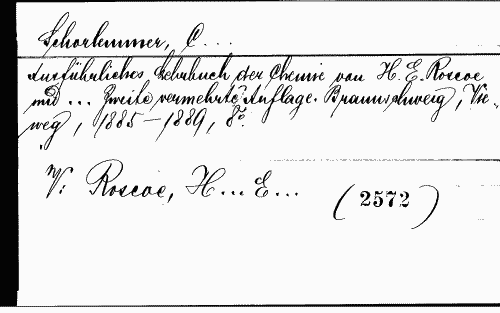 Schorlemmer, C...
Ausführliches Lehrbuch der Chemie von H. E. Roscoe
und ... Zweite vermehrte Auflage. Braunschweig, Vie-
weg, 1885-1889, 8º.
V: Roscoe, H... E...
(2572)